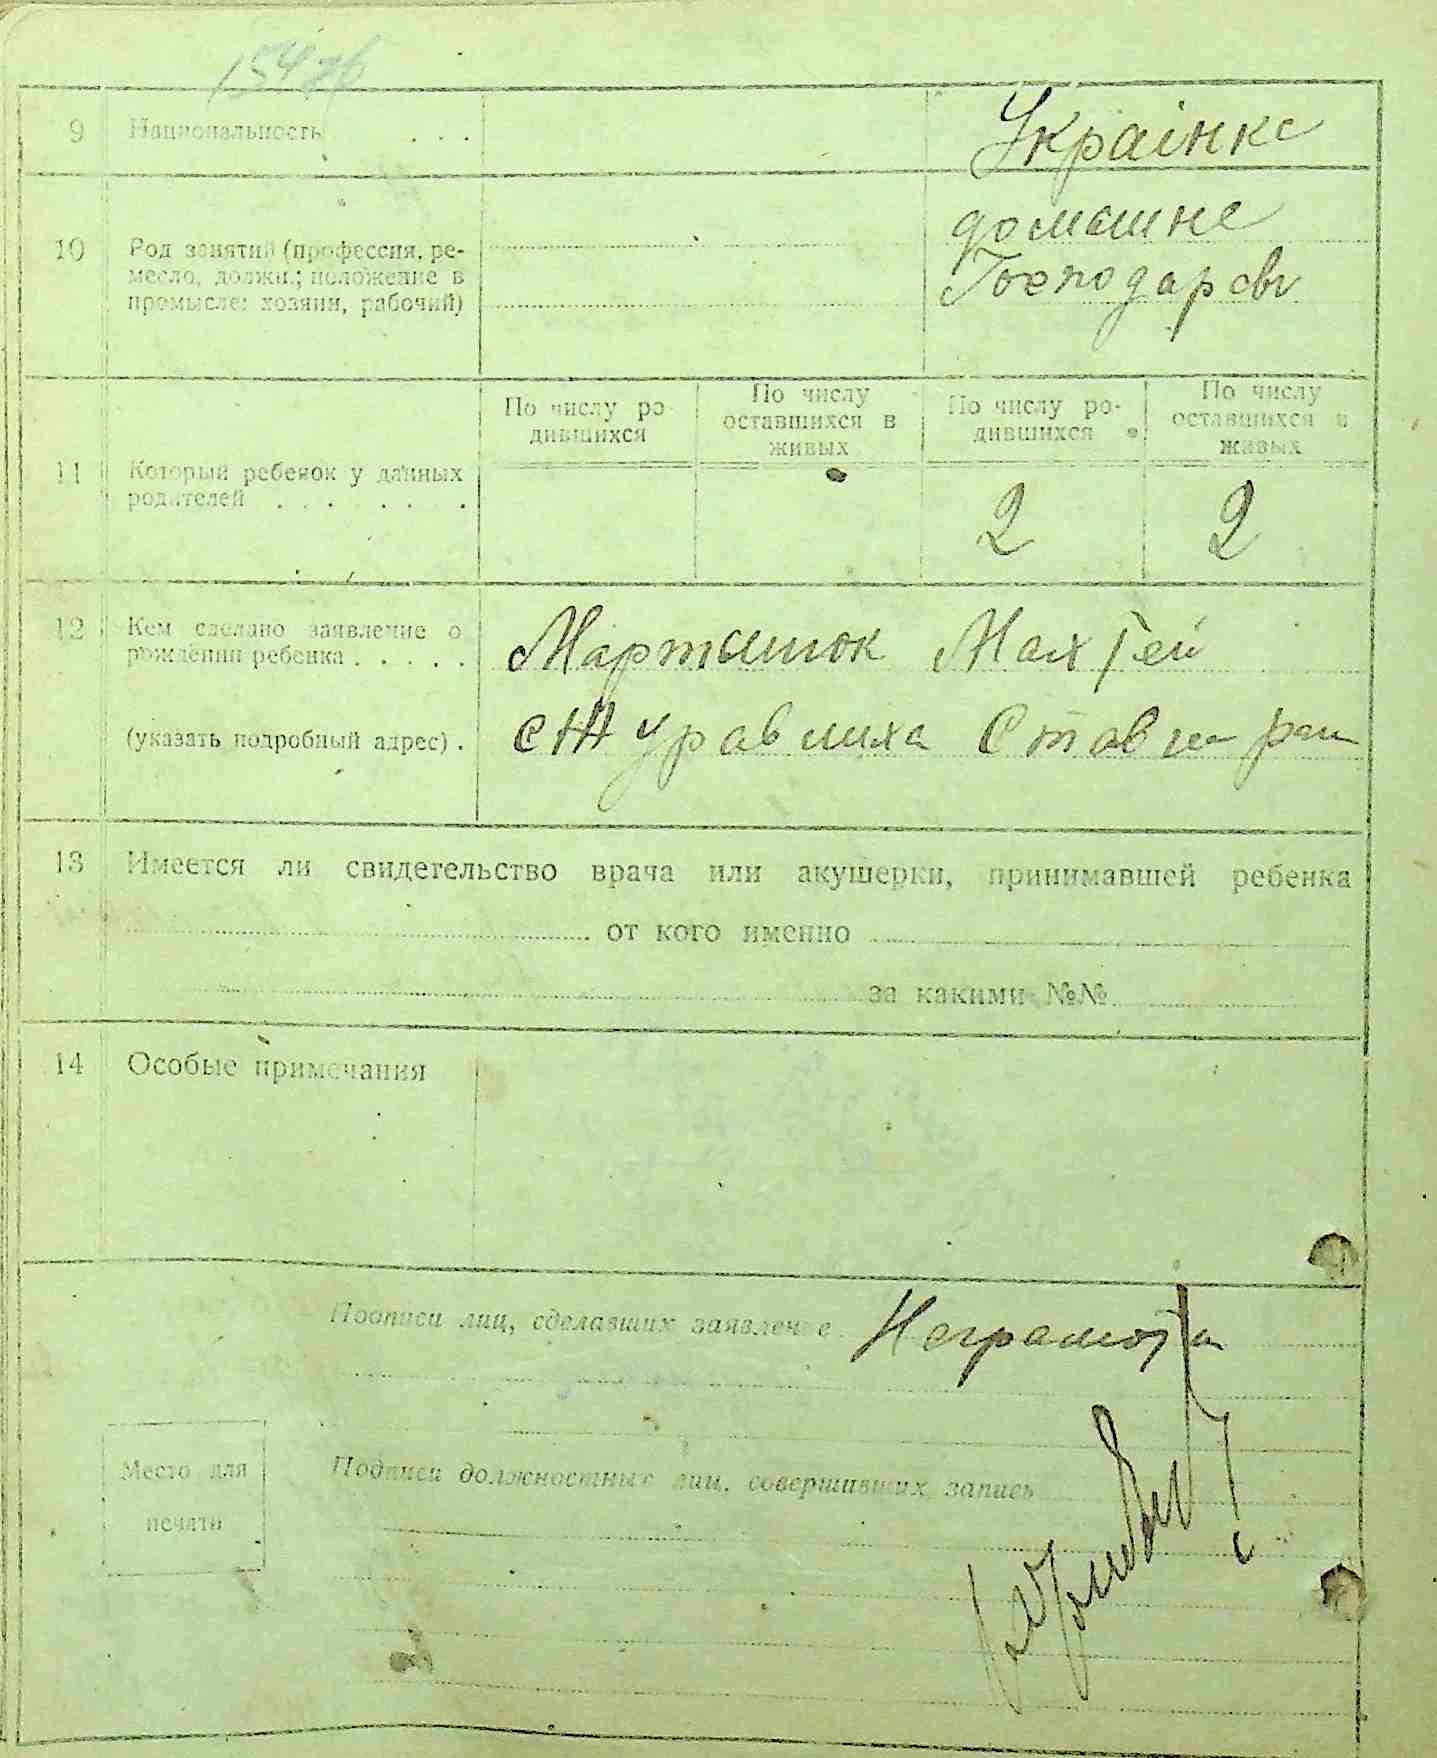 9 Национальность . . . Українка
10 Род занятий (профессия, ре-
месло, должн.; положение в
промысле: хозяин, рабочий)
домашнє
Господарство
По числу ро-
дившихся
По числу
оставшихся в
живых
По числу ро-
дившихся
По числу
оставшихся в
живых
11 Который ребенок у данных
родителей . . . . . . .
2 2
12 Кем сделано заявление о
рождении ребенка . . . . .
Мартынюк
(указать подробный адрес) .
с Журавлиха Ставищ
13 Имеется ли свидетельство врача или акушерки, принимавшей ребенка
от кого именно
за какими №№
14 Особые примечания
Подписи лиц, сделавших заявление Неграмотн
Место для
печати
Подписи должностных лиц, совершивших запись